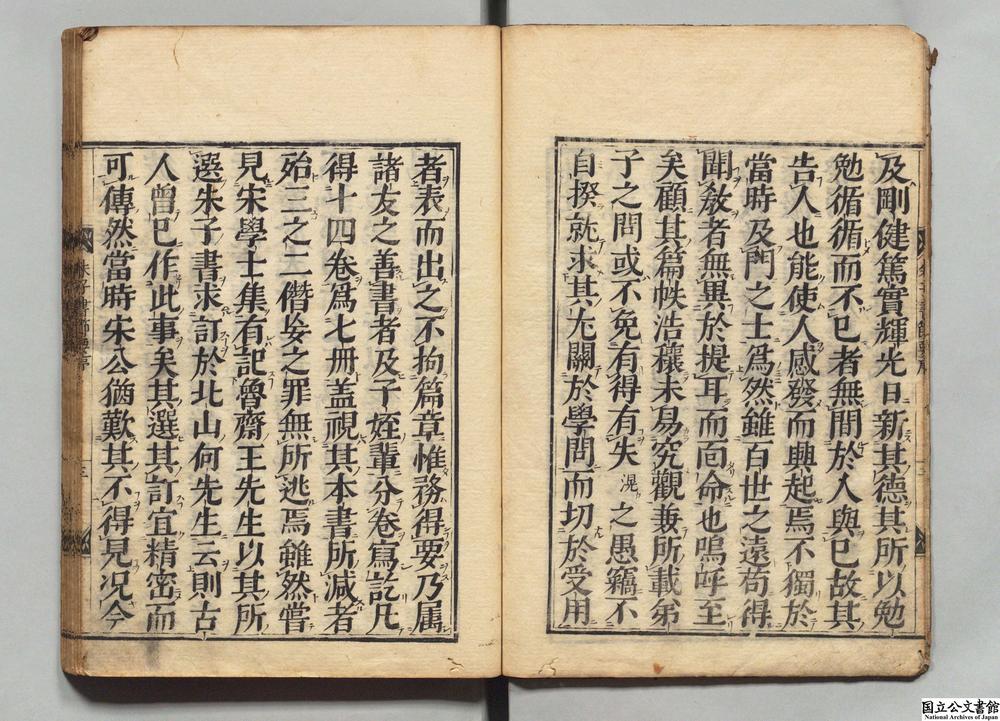 及剛健篤實輝光日新其德其所以勉
勉循循而不已者無間於人與已故其
告人也能使人感發而興起焉不獨於
當時及門之士爲然雖百世之遠苟得
聞敎者無異於提耳而面命也嗚呼至
矣顧其篇帙浩穰未易究觀兼所載第
子之問或不免有得有失滉之愚竊不
自揆就求其尤關於學問而切於受用
者表而出之不拘篇章惟務得要乃属
諸友之善書者及子姪輩分卷寫訖凡
得十四卷爲七冊盖視其本書所減者
殆三之二僭妄之罪無所逃焉雖然嘗
見宋學士集有記魯齋王先生以其所
選朱子書求訂於北山何先生云則古
人曾已作此事矣其選其訂宜精密而
可傳然當時宋公猶歎其不得見况今
朱子書節要序
三
国立公文書館
National Archives of Japan